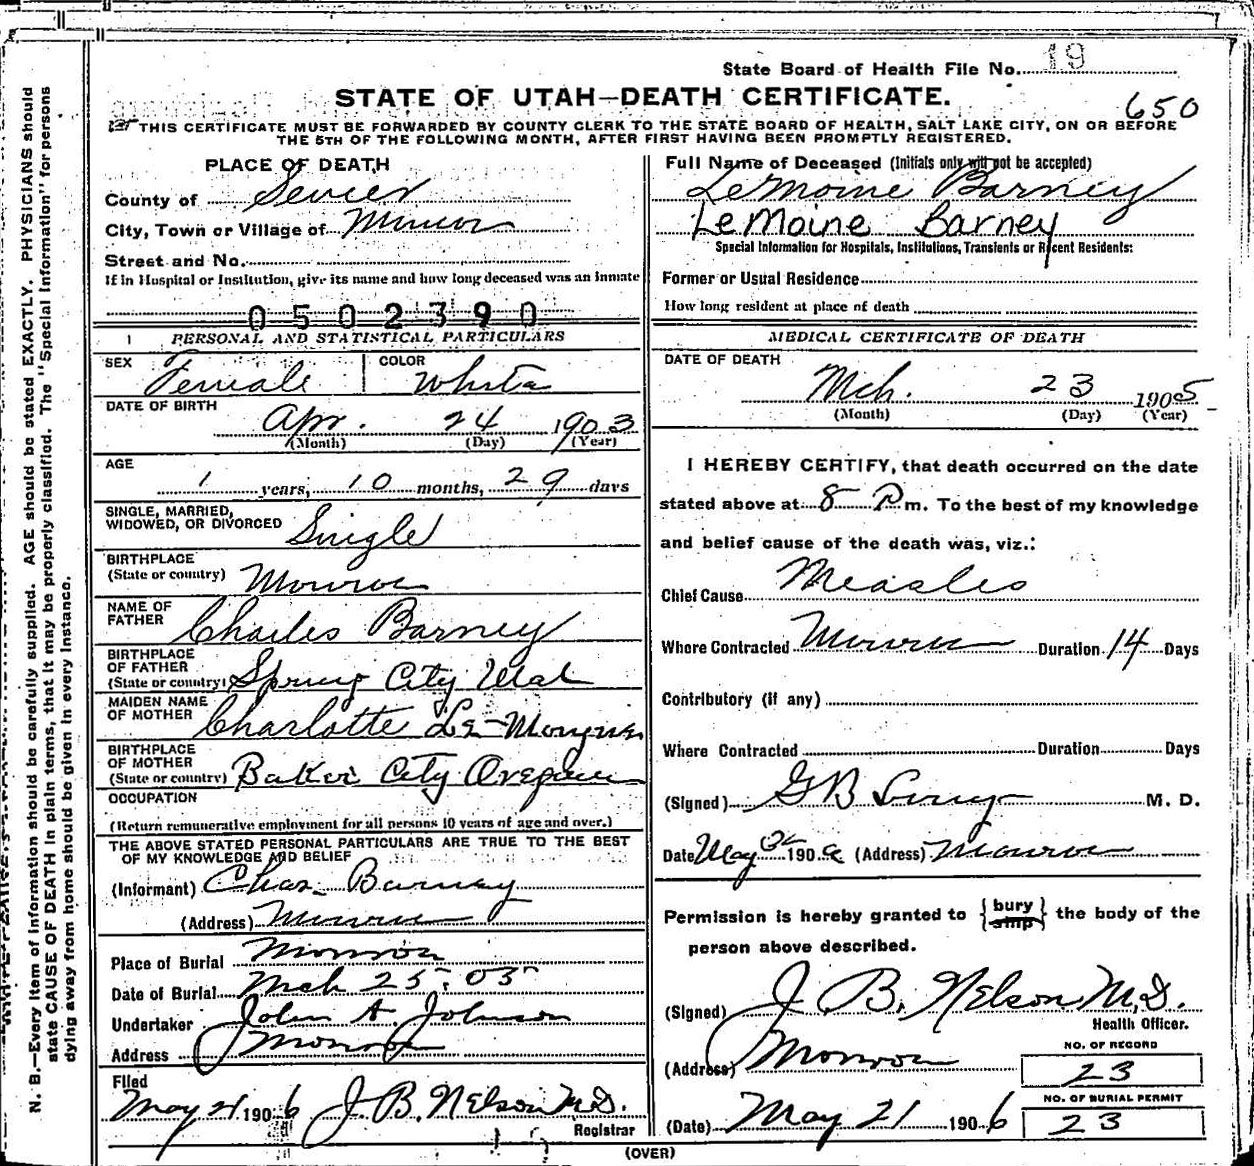 State Board of Health File No. 19
STATE OF UTAH—DEATH CERTIFICATE.
650
THIS CERTIFICATE MUST BE FORWARDED BY COUNTY CLERK TO THE STATE BOARD OF HEALTH, SALT LAKE CITY, ON OR BEFORE
THE 5TH OF THE FOLLOWING MONTH, AFTER FIRST HAVING BEEN PROMPTLY REGISTERED.
PLACE OF DEATH
County of Sevier
City, Town or Village of Monroe
Street and No.
If in Hospital or Institution, give its name and how long deceased was an inmate
0502390
PERSONAL AND STATISTICAL PARTICULARS
SEX Female COLOR White
DATE OF BIRTH
Apr. 24 1903
(Month) (Day) (Year)
AGE
1 years, 10 months, 29 days
SINGLE, MARRIED,
WIDOWED, OR DIVORCED Single
BIRTHPLACE
(State or country) Monroe
NAME OF
FATHER Charles Barney
BIRTHPLACE
OF FATHER
(State or country) Spring City Utah
MAIDEN NAME
OF MOTHER Charlotte Le-
BIRTHPLACE
OF MOTHER
(State or country) Baker City Oregon
OCCUPATION
(Return remunerative employment for all persons 10 years of age and over.)
THE ABOVE STATED PERSONAL PARTICULARS ARE TRUE TO THE BEST
OF MY KNOWLEDGE AND BELIEF
(Informant) Chas. Barney
(Address) Monroe
Place of Burial Monroe
Date of Burial Mch 25. 05
Undertaker John A. Johnson
Address Monroe
Filed
May 21 1906 J. B. Nelson M.D.
Registrar
Full Name of Deceased (Initials only will not be accepted)
LeMoine Barney
LeMoine Barney
Special Information for Hospitals, Institutions, Transients or Recent Residents:
Former or Usual Residence
How long resident at place of death
MEDICAL CERTIFICATE OF DEATH
DATE OF DEATH
Mch. 23 1905
(Month) (Day) (Year)
I HEREBY CERTIFY, that death occurred on the date
stated above at 8 P m. To the best of my knowledge
and belief cause of the death was, viz.:
Chief Cause Measles
Where Contracted Monroe Duration 14 Days
Contributory (if any)
Where Contracted Duration Days
(Signed) G B M. D.
Date May 190 (Address) Monroe
Permission is hereby granted to {bury ship} the body of the
person above described.
(Signed) J. B. Nelson M.D.
Health Officer.
(Address) Monroe
NO. OF RECORD
23
NO. OF BURIAL PERMIT
23
(Date) May 21 1906
(OVER)
N. B.—Every item of information should be carefully supplied. AGE should be stated EXACTLY. PHYSICIANS should
state CAUSE OF DEATH in plain terms, that it may be properly classified. The "Special Information" for persons
dying away from home should be given in every instance.